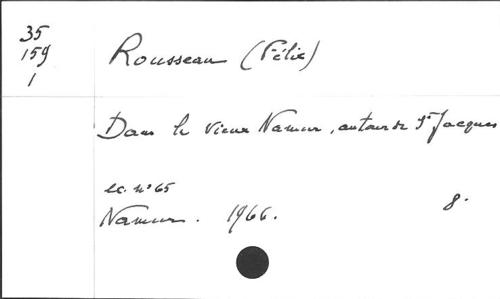 35
159
1
Rousseau (Félix)
Dans le vieux Namur, autour de St Jacques
ec. n° 65
Namur. 1966.
8.